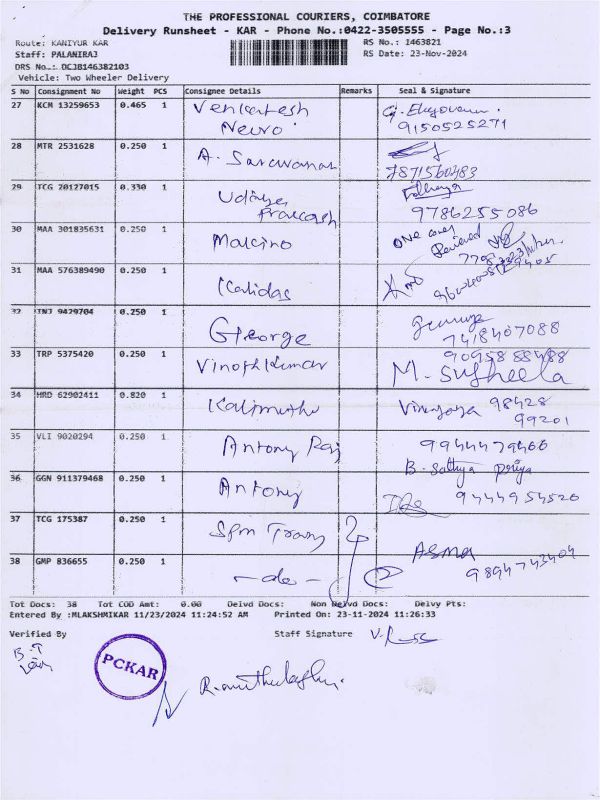 THE PROFESSIONAL COURIERS, COIMBATORE
Delivery Runsheet - KAR - Phone No.:0422-3505555 - Page No.:3
Route: KANIYUR KAR
RS No.: 1463821
Staff: PALANIRAJ
RS Date: 23-Nov-2024
DRS No.: DCJB146382103
Vehicle: Two Wheeler Delivery
S No Consignment No Weight PCS Consignee Details Remarks Seal & Signature
27 KCM 13259653 0.465 1 Venkatesh
Neuro
9150525271
28 MTR 2531628 0.250 1 A. Saravanan
7871560483
29 TCG 20127015 0.330 1 Udhaya
Prakash
9786255086
30 MAA 301835631 0.250 1 Malcino one cover
Received
31 MAA 576389490 0.250 1 Kalidas
32 INJ 9429704 0.250 1 George
7418407088
33 TRP 5375420 0.250 1 Vinoth Kumar 9095888488
M. Susheela
34 HRD 62902411 0.820 1 Kalimuthu 98428
99201
35 VLI 9020294 0.250 1 Antony Raj 9944479466
B. Sathya priya
36 GGN 911379468 0.250 1 Antony 9444954520
37 TCG 175387 0.250 1 Spm Trans
ASMA
38 GMP 836655 0.250 1 - do - 9894743404
Tot Docs: 38 Tot COD Amt: 0.00 Delvd Docs: Non Delvd Docs: Delvy Pts:
Entered By :MLAKSHMIKAR 11/23/2024 11:24:52 AM Printed On: 23-11-2024 11:26:33
Verified By Staff Signature
PCKAR